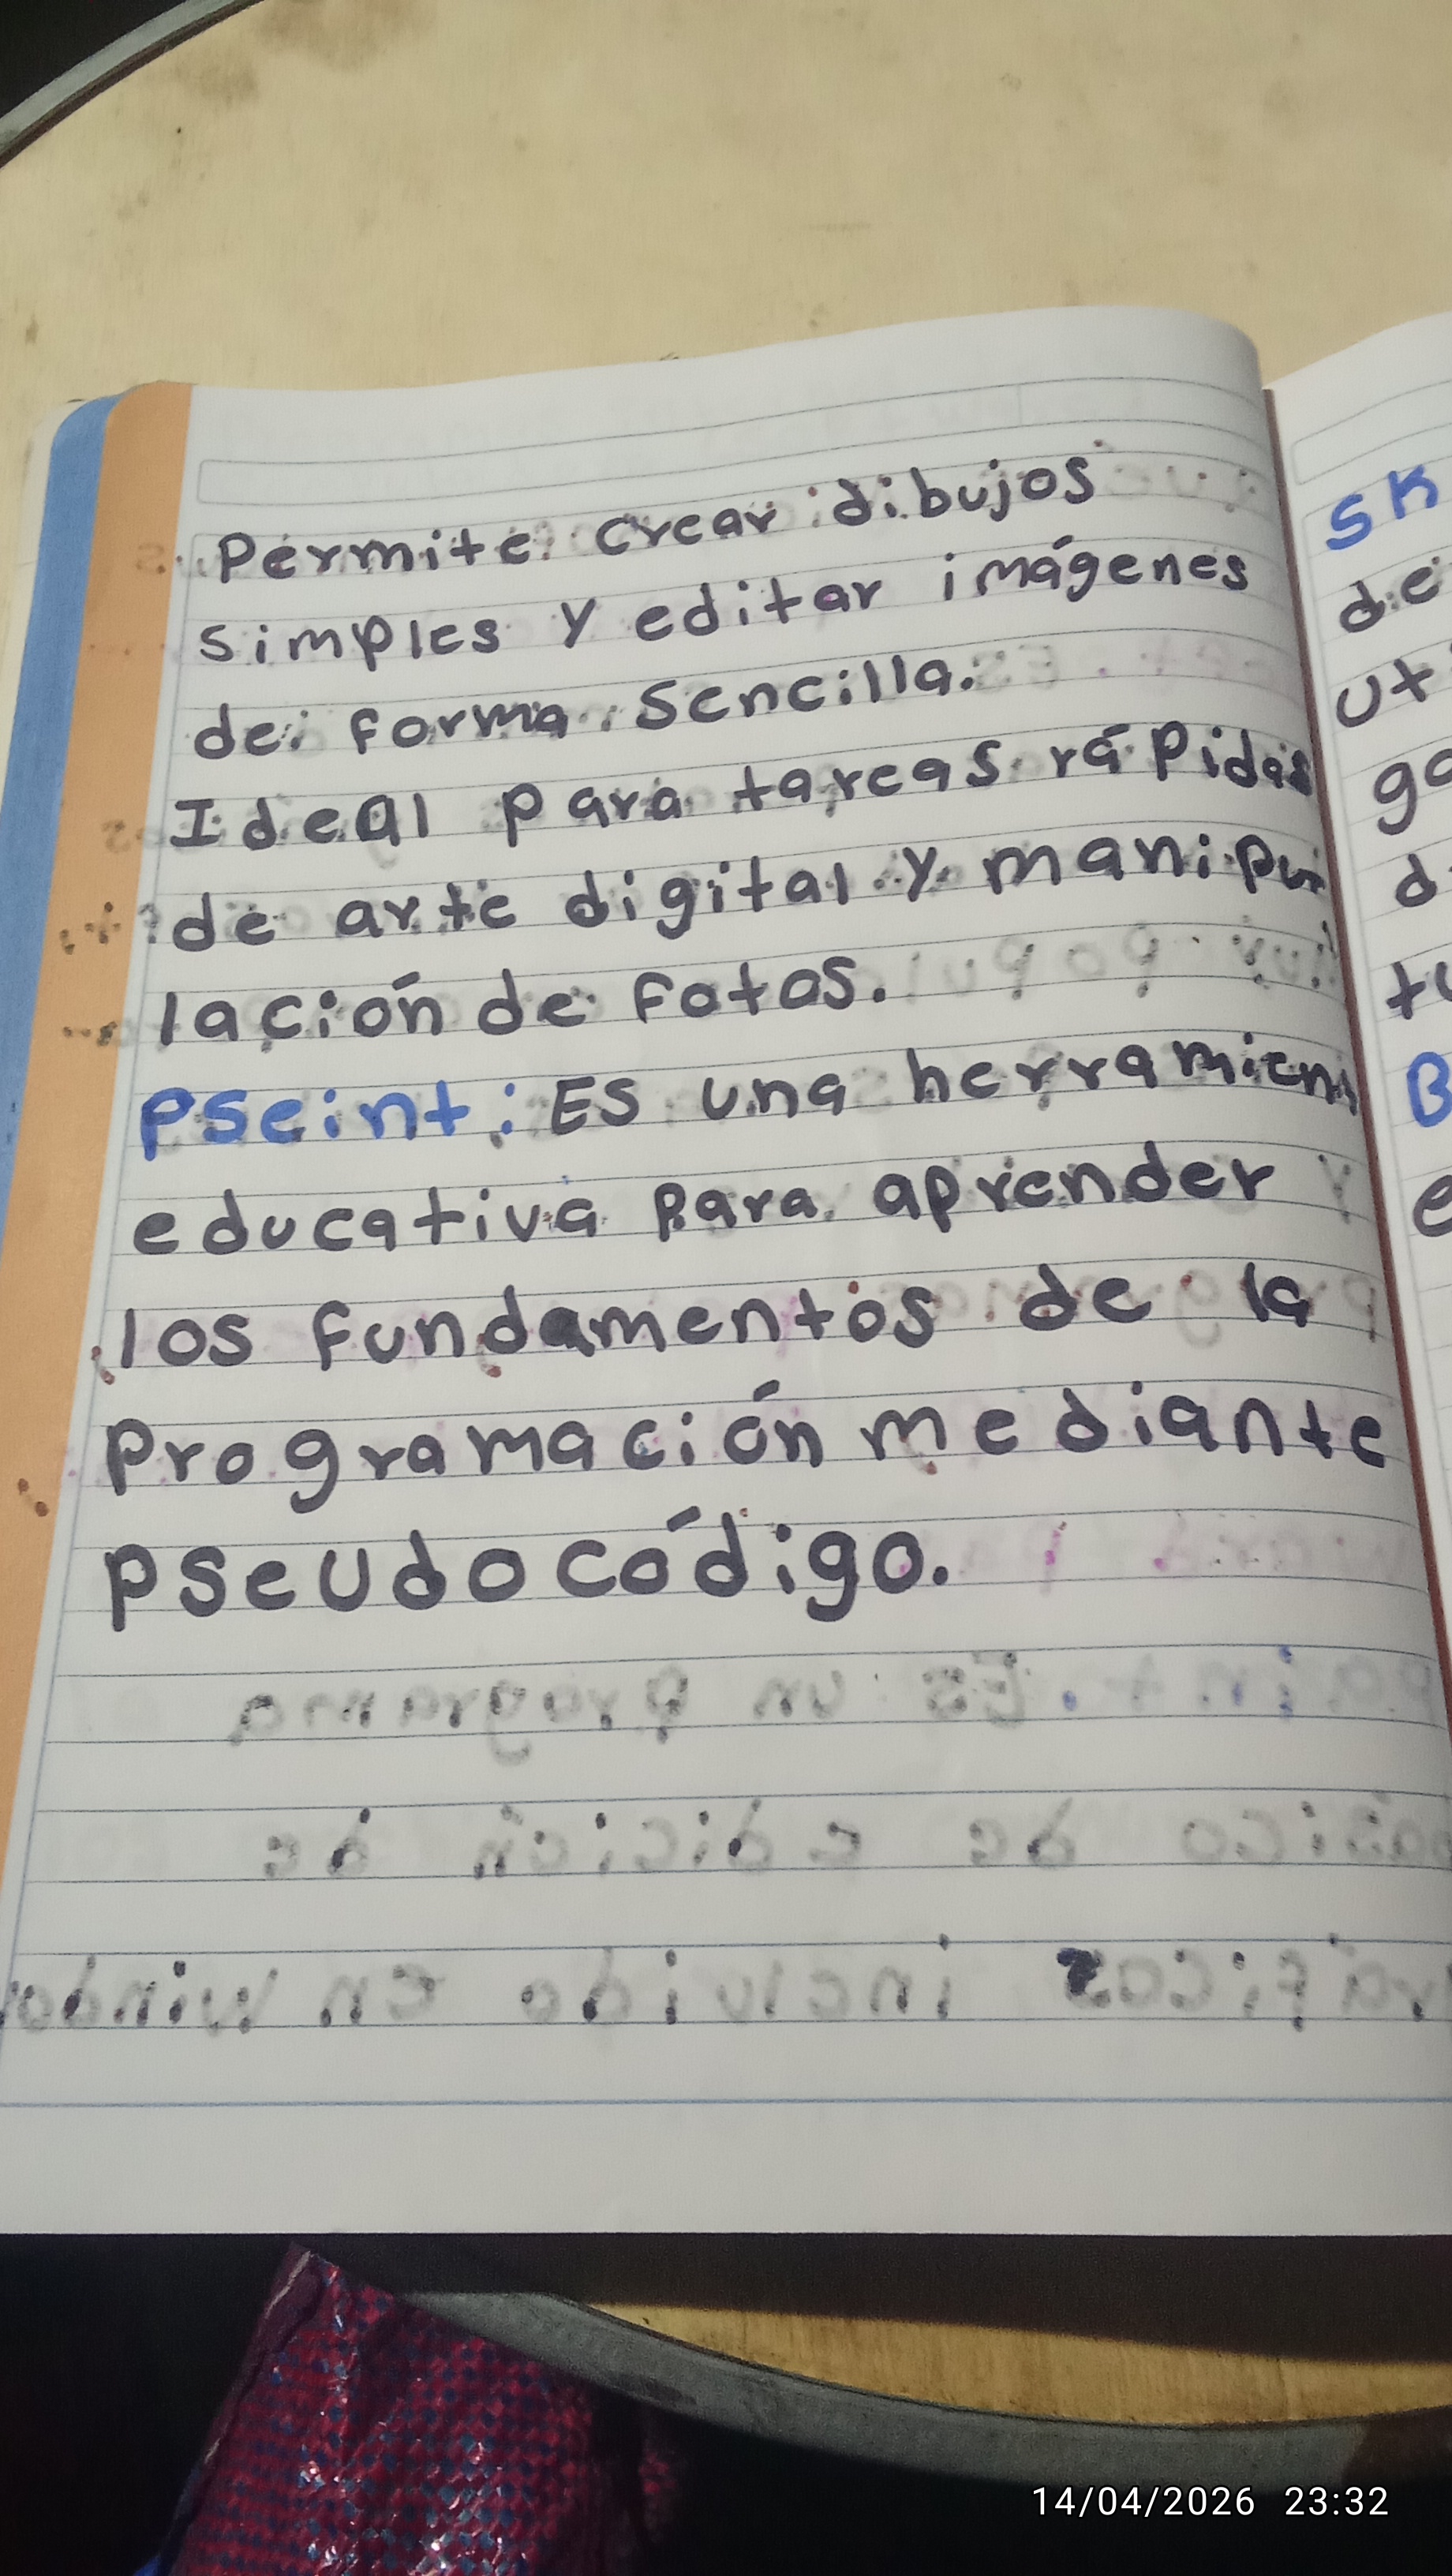 Permite crear dibujos
simples y editar imágenes
de forma sencilla.
Ideal para tareas rápidas
de arte digital y manipu
lación de fotos.
Pseint: Es una herramien
educativa para aprender
los fundamentos de la
programación mediante
pseudocódigo.
SK
de
ut
ga
d
tu
B
e
14/04/2026 23:32